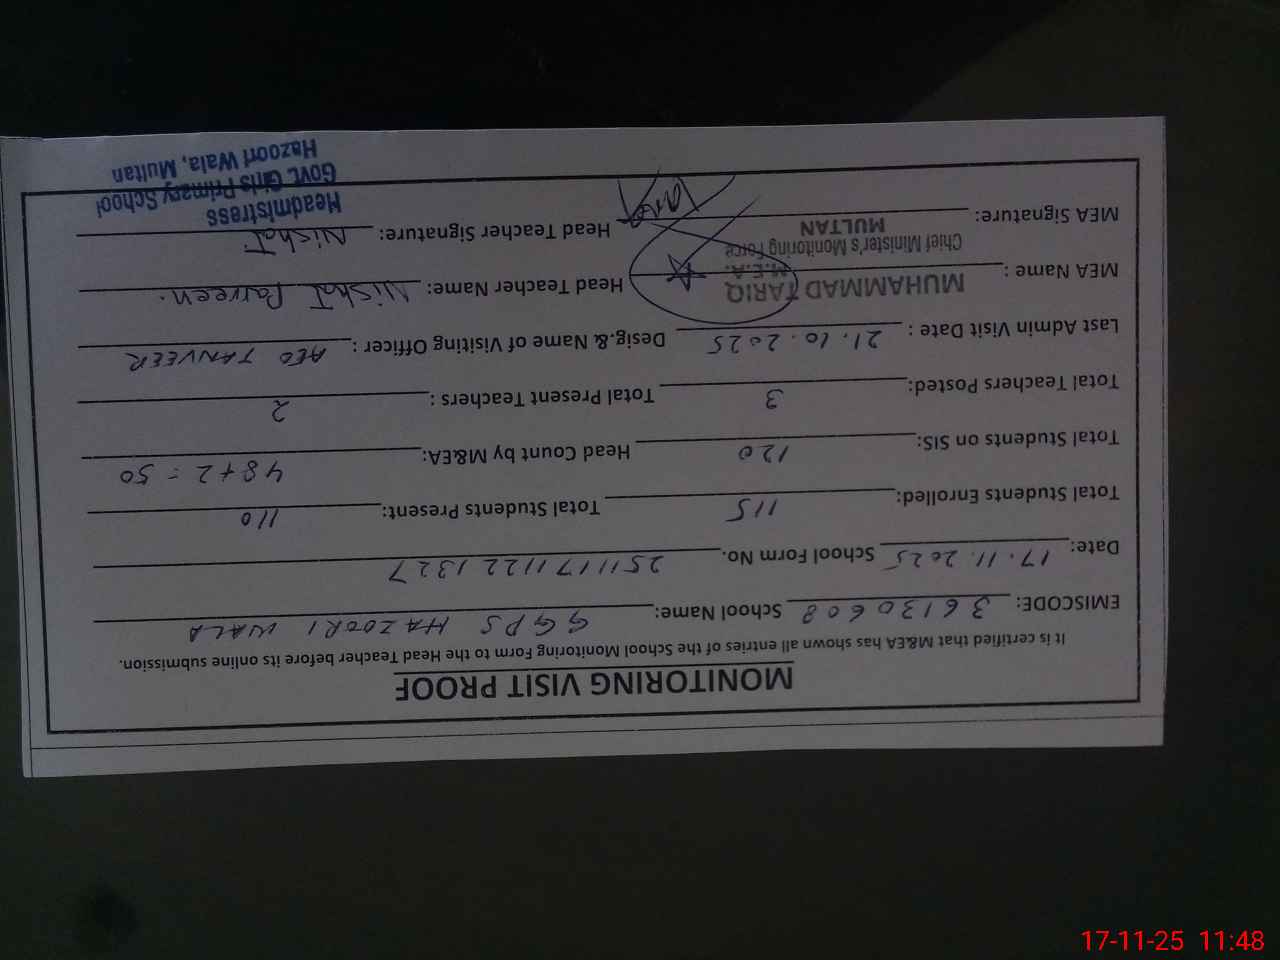 MONITORING VISIT PROOF
It is certified that M&EA has shown all entries of the School Monitoring Form to the Head Teacher before its online submission.
EMISCODE: 36130608 School Name: GGPS HAZOORI WALA
Date: 17.11.2025 School Form No. 2511171122 1327
Total Students Enrolled: 115 Total Students Present: 110
Total Students on SIS: 120 Head Count by M&EA: 48+2=50
Total Teachers Posted: 3 Total Present Teachers : 2
Last Admin Visit Date : 21.10.2025 Desig.&.Name of Visiting Officer : AEO TANVEER
MEA Name : MUHAMMAD TARIQ Head Teacher Name: Nishat Parveen.
M.E.A.
Chief Minister's Monitoring Force
MULTAN
MEA Signature: Head Teacher Signature: Nishat
Headmistress
Govt. Girls Primary School
Hazoori Wala, Multan
17-11-25 11:48